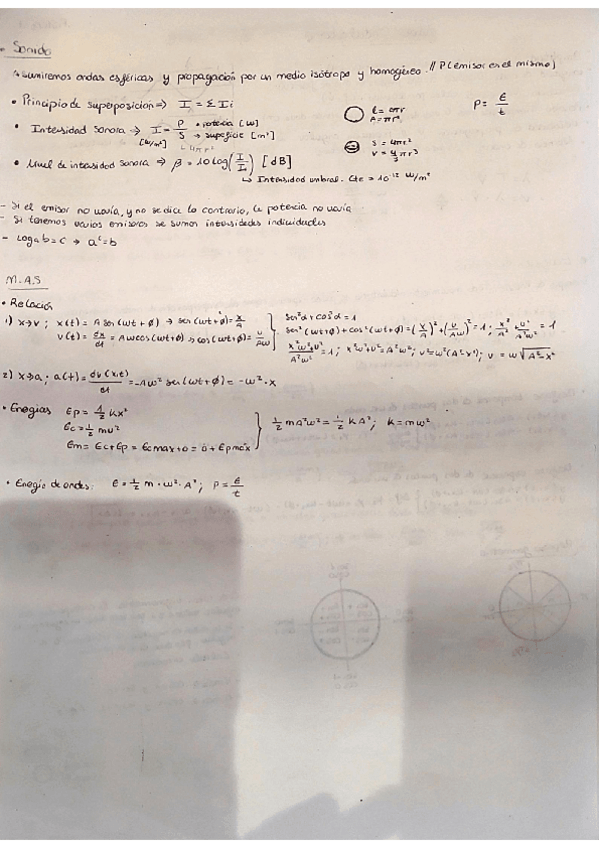 • Sonido
Asumiremos ondas esféricas y propagación por un medio isótropo y homogéneo. // P (emisor es el mismo)
• Principio de superposición ⇒ I = Σ Ii
P = E/t
• Intensidad sonora → I = P/S → potencia [W] → superficie [m²]
[W/m²] 4πr²
A = πr²
S = 4πr²
V = 4/3 πr³
• Nivel de intensidad sonora → β = 10 log(I/I) [dB]
↳ Intensidad umbral. Cte = 10⁻¹² W/m²
- Si el emisor no varía, y no se dice lo contrario, la potencia no varía
- Si tenemos varios emisores se suman intensidades individuales
- log a b = c → aᶜ = b
M.A.S
• Relación
1) x→v ; x(t) = A sen(wt + ø) → sen(wt + ø) = x/A
v(t) = dx/dt = Aw cos(wt + ø) → cos(wt + ø) = v/Aw
sen²α + cos²α = 1
sen²(wt+ø) + cos²(wt+ø) = (x/A)² + (v/Aw)² = 1 ; x²/A² + v²/A²w² = 1
x²w² + v²/A²w² = 1 ; x²w² + v² = A²w² ; v² = w²(A² - x²) ; v = w√A² - x²
2) x→a ; a(t) = dv(x,t)/dt = -Aw² sen(wt + ø) = -w² · x
• Energías Ep = 1/2 kx²
Ec = 1/2 mv²
Em = Ec + Ep = Ec max + 0 = 0 + Ep max
1/2 mA²w² = 1/2 kA² ; k = mw²
• Energía de ondas: E = 1/2 m · w² · A² ; P = E/t